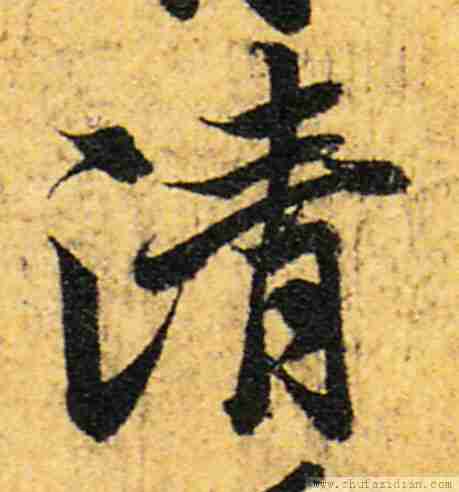 清
www.shufazidian.com